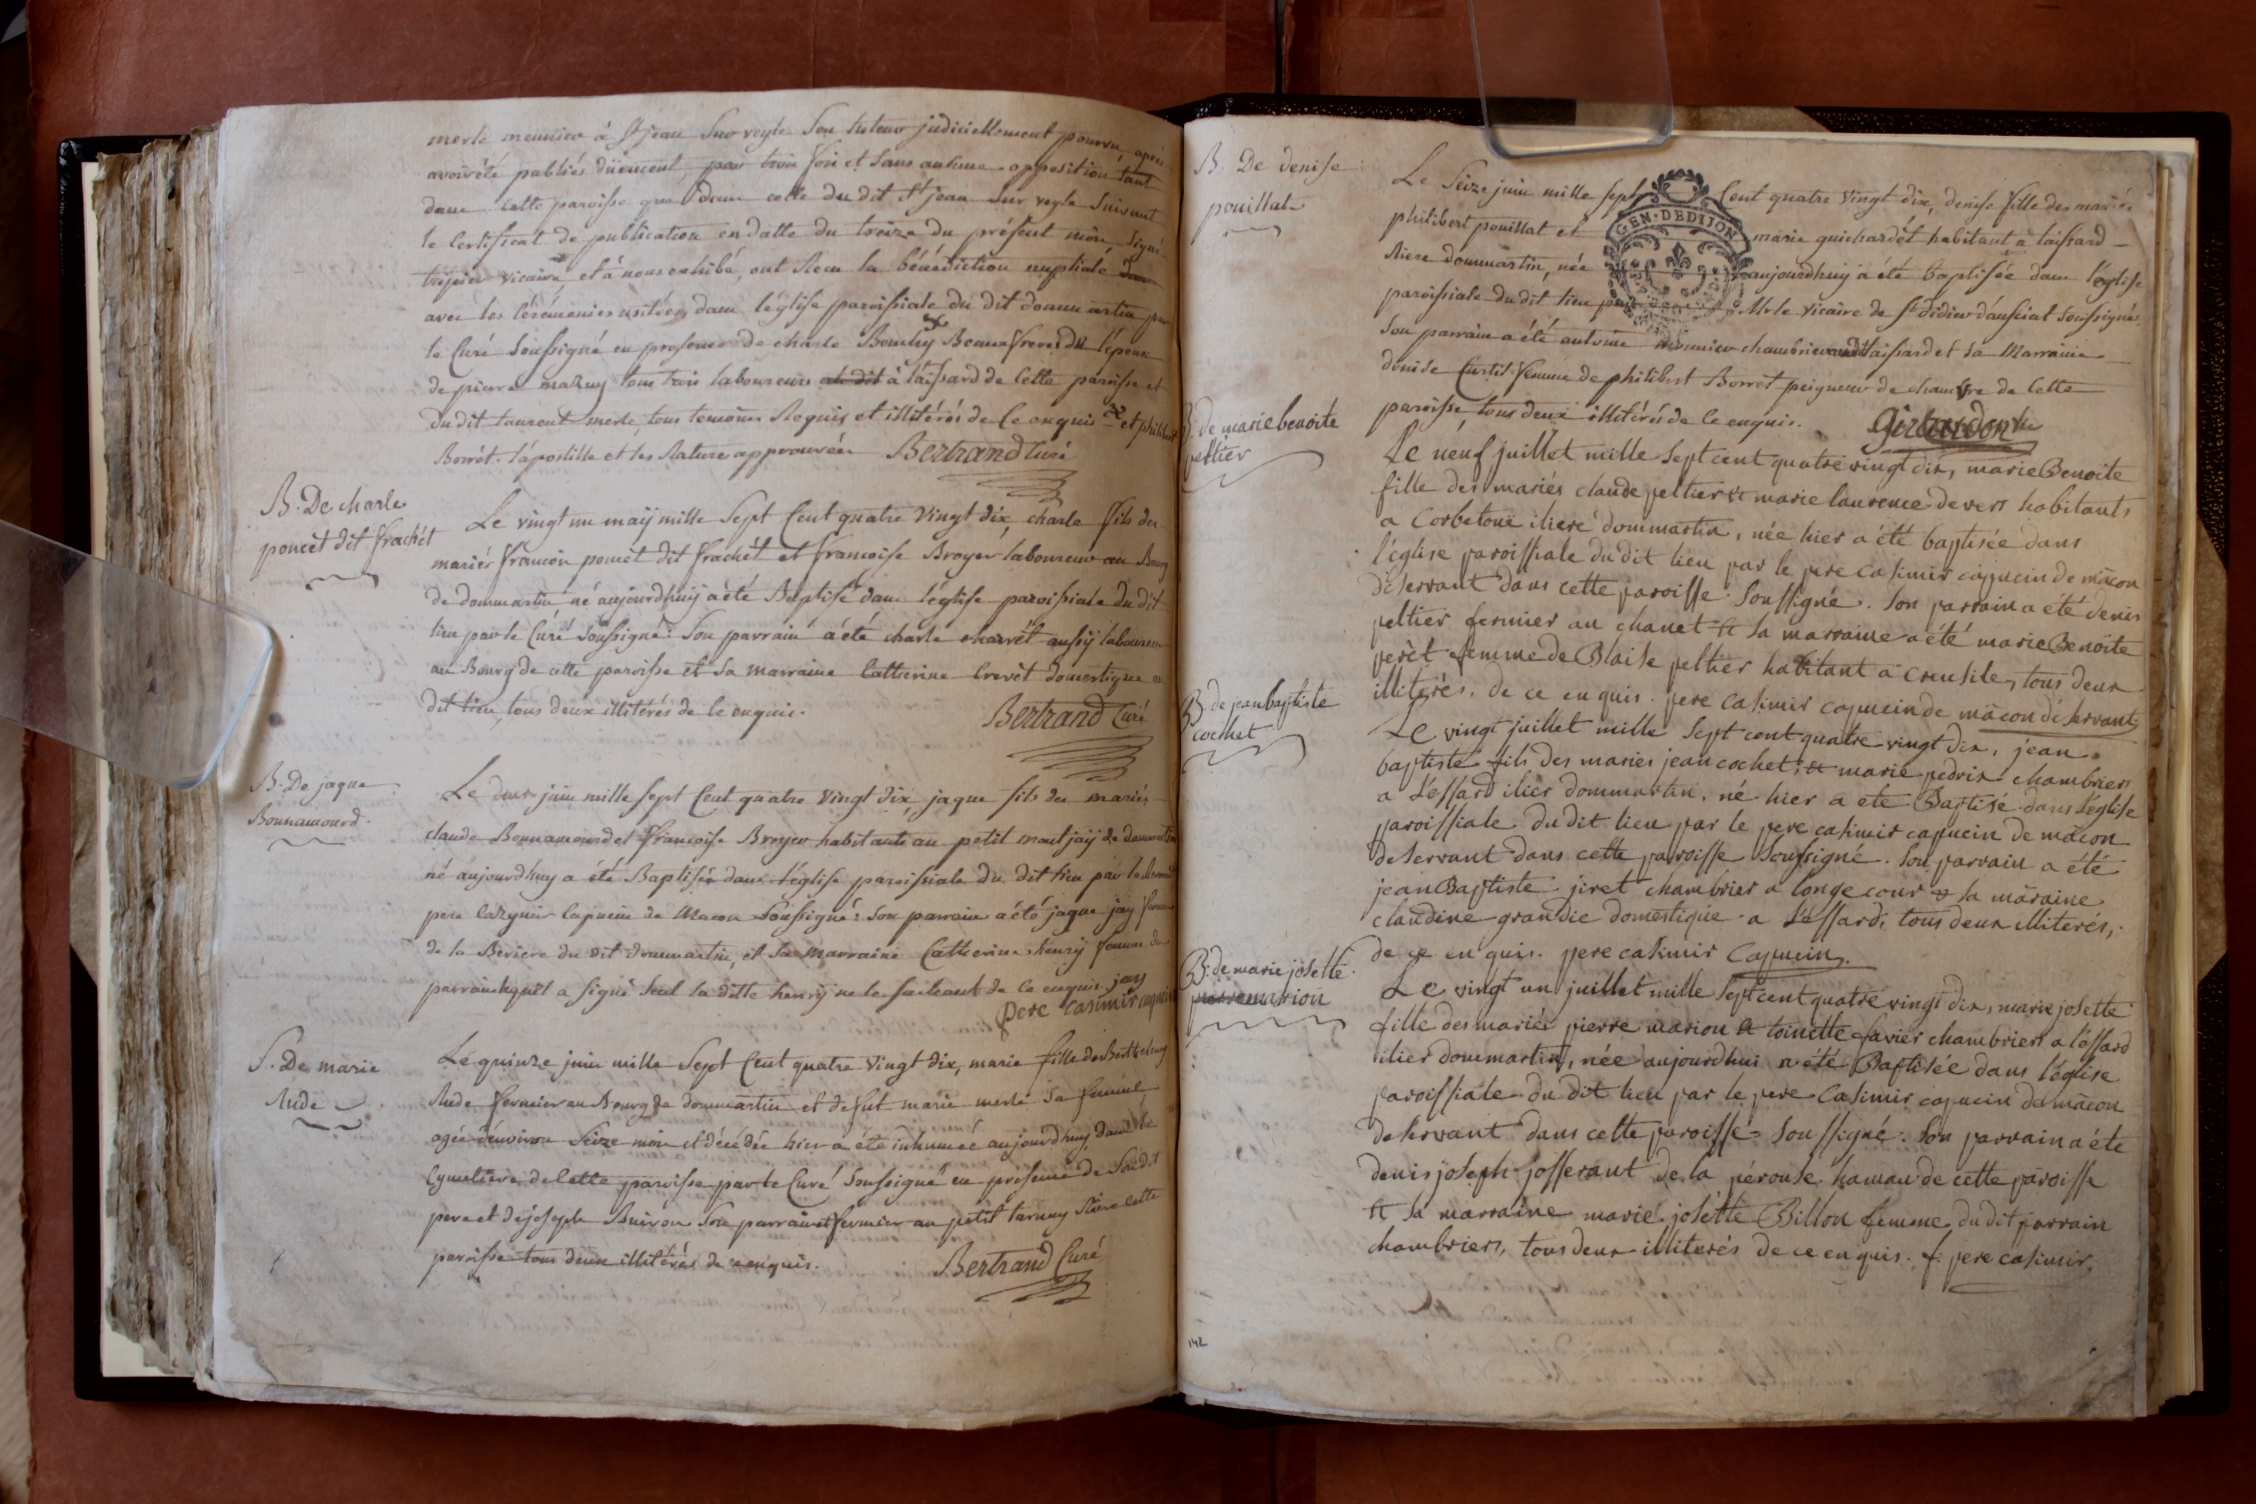 merle meunier à St jean sur veyle son tuteur judiciellement pourvu, après
avoir été publiés düement, par trois fois et sans aucune opposition tant
dans cette paroisse que dans celle du dit St jean sur veyle suivant
le Certificat de publication en datte du treize du présent mois, signé
vicaire, et à nous exhibé, ont Recu la bénédiction nuptiale
avec les cérémonies usitées dans l'église paroissiale du dit dommartin par
le Curé Soussigné en présence de charle Bouchy Beaux freres de l'epoux
de pierre mazuy tous trois laboureurs au dit à laissard de Cette paroisse et
du dit laurent merle, tous temoins Requis et illitérés de Ce enquis et philibert
Borrét. l'apostille et les Rature approuvées Bertrand Curé
B. De charle
poncét dit frachét
Le vingt un maÿ mille Sept Cent quatre vingt dix, charle fils des
mariés francois poncét dit frachét et francoise Broyer laboureur au Bourg
de dommartin né aujourdhuy a été Baptisé dans l'église paroissiale du dit
lieu par le Curé Soussigné. Son parrain a été charle charrét aussÿ laboureur
au Bourg de cette paroisse et sa marraine Catherine Crevét domestique au
dit lieu, tous deux illitérés de Ce enquis.
Bertrand Curé
B. De jaque
Bonnamourd.
Le deux juin mille Sept Cent quatre vingt dix, jaque fils des mariés
claude Bonnamourd et francoise Broyer habitants au petit montjaÿ de dommartin
né aujourdhuy a été Baptisée dans l'église paroissiale du dit lieu par le
pere Cazymir Capucin de Macon Soussigné: Son parrain a été jaque jaÿ
de la Beviere du dit dommartin, et sa marraine Catherine henrÿ femme du
parrain lequel a signé seul la ditte henrÿ ne le sachant de ce enquis. jaÿ
pere Casimir capucin
S. De marie
Rude
Le quinze juin mille Sept Cent quatre vingt dix, marie fille de Berthelemy
Rude fermier au Bourg de dommartin et defut marie merle sa femme,
agée d'environ Seize mois et décédée hier a été inhumée aujourdhuy dans le
Cymetiere de Cette paroisse par le Curé Soussigné en présence de Son dit
pere et de joseph Buiron Son parrain et fermier au petit tarnuy Riere Cette
paroisse tous deux illitérés de ce enquis.
Bertrand Curé
B. De denise
pouillat
Le Seize juin mille Sept Cent quatre vingt dix, denise fille des mariés
philibert pouillat et marie guichardét habitant à laissard
Riere dommartin, née aujourdhuy a été baptisée dans l'église
paroissiale du dit lieu par Mr le vicaire de St didier d'aussiat Soussigné.
Son parrain a été antoine meunier chambrier audit laissard et sa Marraine
denise Curtil femme de philibert Borrét peigneur de chanvre de Cette
paroisse, tous deux illitérés de Ce enquis. Giraudon vic
GEN·DE DIJON
B. de marie benoite
peltier
Le neuf juillet mille Sept cent quatre vingt dix, marie Benoite
fille des mariés claude peltier et marie laurence devers habitants
a Corbetone iliere dommartin, née hier a été baptisée dans
l'église paroissiale du dit lieu par le pere Casimir capucin de mâcon
déservant dans cette paroisse Soussigné. Son parrain a été denis
peltier fermier au chanet et sa marraine a été marie Benoite
perèt femme de Blaise peltier habitant a Creusile, tous deux
illiterés. de ce enquis. pere Casimir capucin de mâcon déservant
B. de jean baptiste
cochet
Le vingt juillet mille Sept cent quatre vingt dix, jean
baptiste fils des mariés jean cochet, et marie pedrix chambriers
a Léssard ilier dommartin, né hier a eté Baptisé dans l'église
paroissiale du dit lieu par le pere casimir capucin de mâcon
deservant dans cette paroisse soussigné. Son parrain a été
jean Baptiste jiret chambrier a longe cour et sa maraine
claudine grandie domestique a Léssard, tous deux illiterés,
de ce enquis. pere casimir Capucin.
B. de marie josette
pierre marion
Le vingt un juillet mille Sept cent quatre vingt dix, marie josette
fille des mariés pierre marion et toinette favier chambriers a léssard
ilier dommartin, née aujourdhui a été Baptisée dans l'église
paroissiale du dit lieu par le pere Casimir capucin de mâcon
deservant dans cette paroisse Soussigné. Son parrain a éte
denis joseph josserant de la pérouse hamau de cette paroisse
et sa marraine marie josette Billon femme du dit parrain
chambriers, tous deux illiterés de ce enquis. f. pere casimir
142